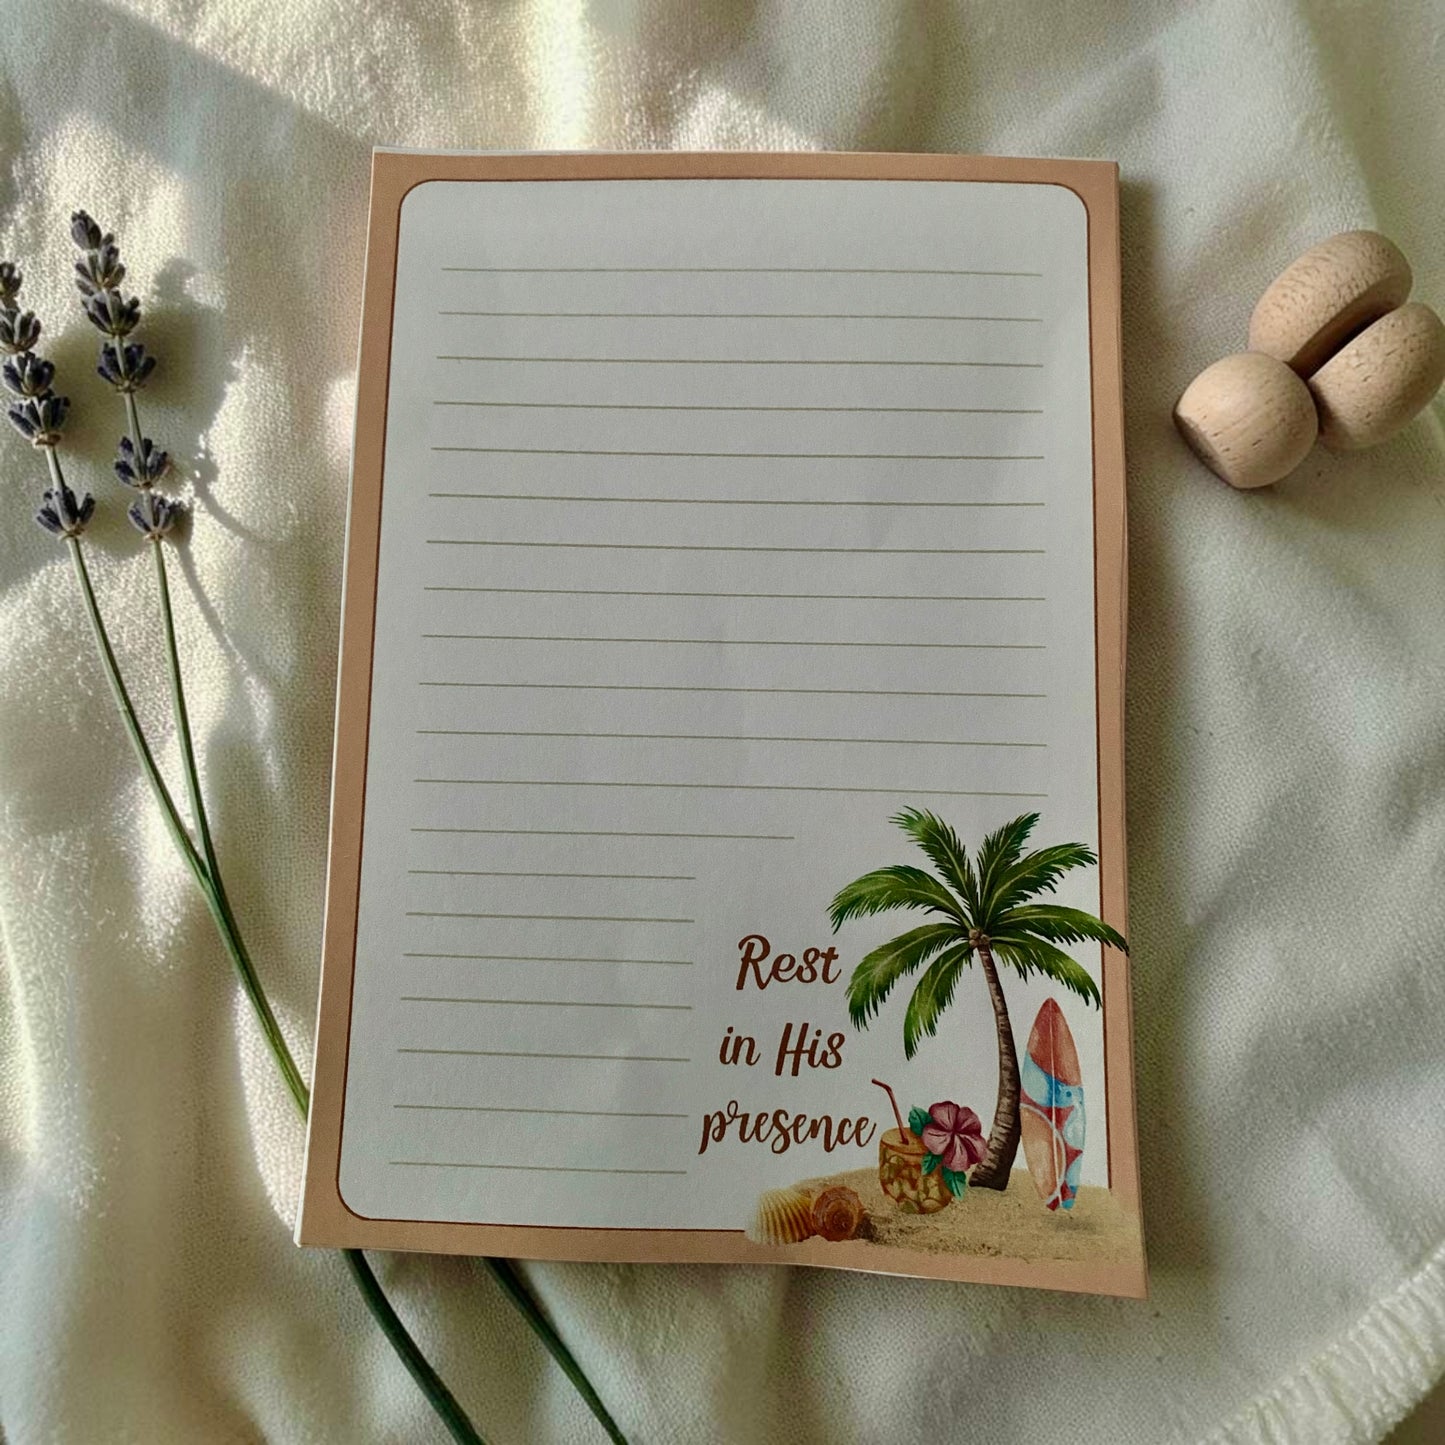 Rest
in His
presence